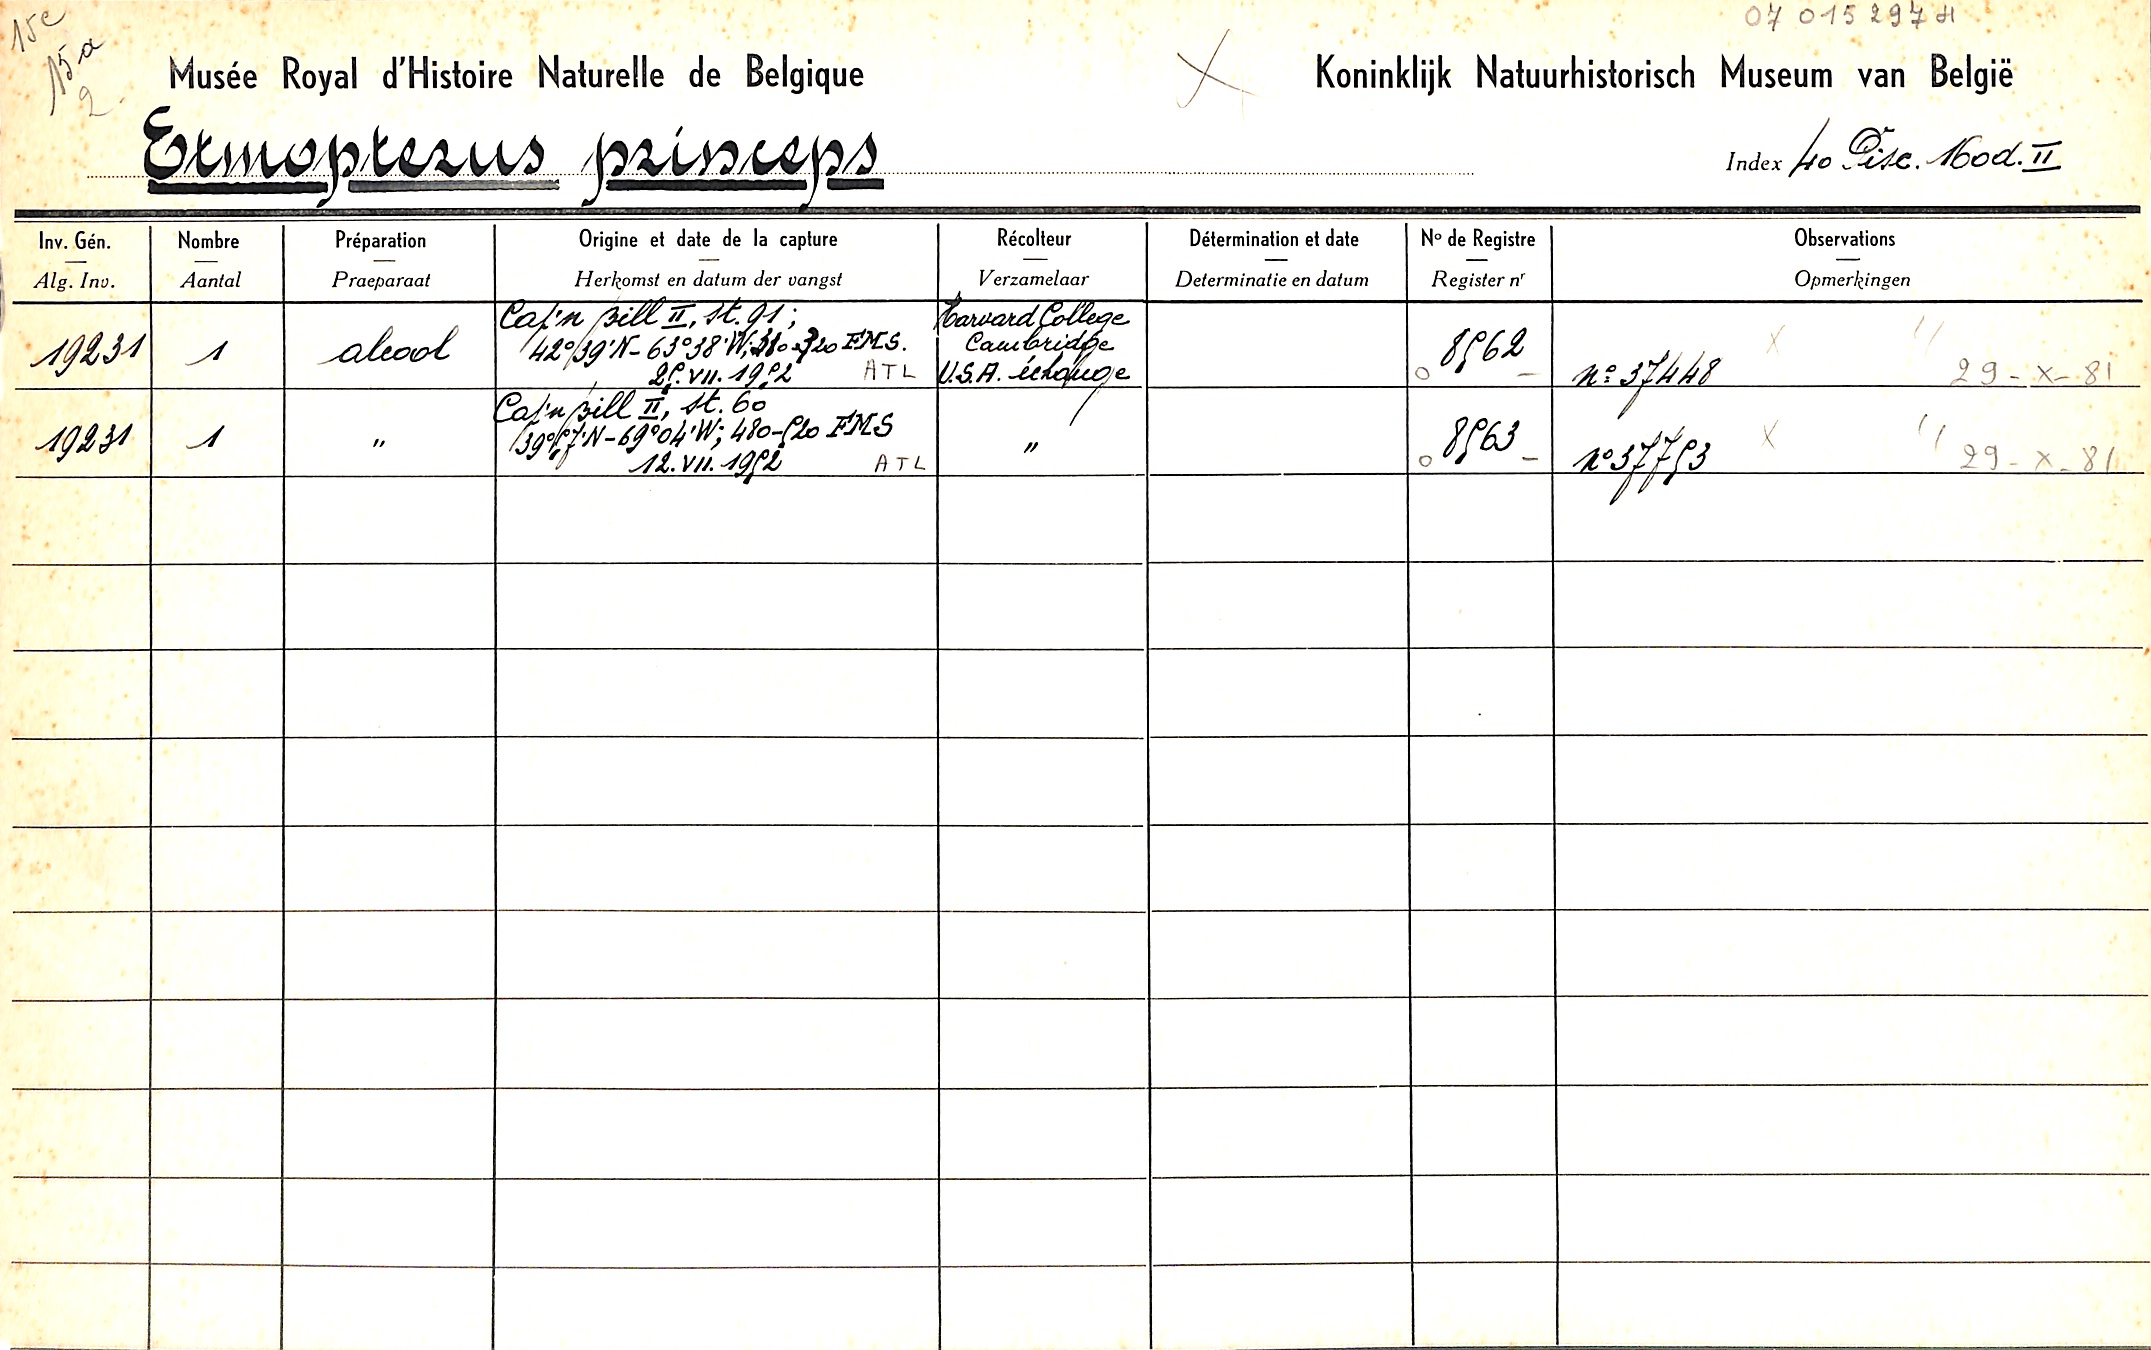 15c
15a
2
07 015 297 H
Musée Royal d'Histoire Naturelle de Belgique
Koninklijk Natuurhistorisch Museum van België
Etmopterus princeps
Index 40 Pisc. Mod. II
Inv. Gén. Nombre Préparation Origine et date de la capture Récolteur Détermination et date No de Registre Observations
Alg. Inv. Aantal Praeparaat Herkomst en datum der vangst Verzamelaar Determinatie en datum Register nr Opmerkingen
Cap'n Bill II, st. 91; Harvard College
19231 1 alcool 42°39'N - 63°38'W; FMS. Cambridge 8562 x "
25.VII.1952 ATL U.S.A. échange o - n° 37448 29-X-81
Cap'n Bill II, st. 60
19231 1 " 39°57'N - 69°04'W; 480-520 FMS " 8563 x "
12.VII.1952 ATL o - n° 37753 29-X-81